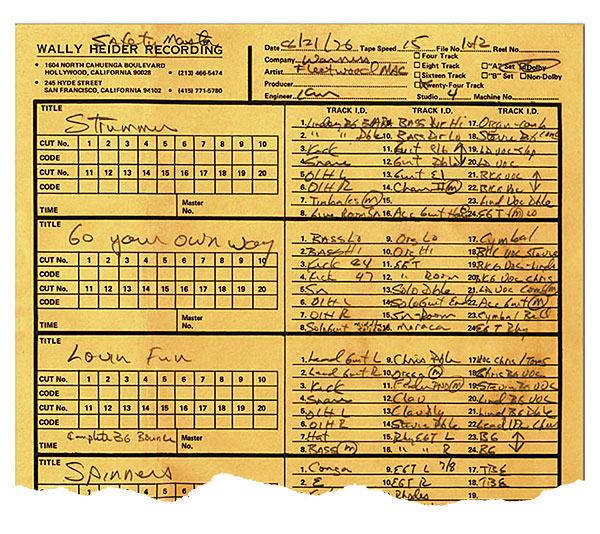 Safety Master
WALLY HEIDER RECORDING
• 1604 NORTH CAHUENGA BOULEVARD
HOLLYWOOD, CALIFORNIA 90028 • (213) 466-5474
• 245 HYDE STREET
SAN FRANCISCO, CALIFORNIA 94102 • (415) 771-5780
Date Tape Speed 15 File No. 1 of 2 Reel No.
Company Warners
Artist Fleetwood Mac
Producer
Engineer Ken Studio 4 Machine No.
Four Track
Eight Track "A" Set Dolby
Sixteen Track "B" Set Non-Dolby
Twenty-Four Track
TITLE TRACK I.D. TRACK I.D. TRACK I.D.
Strummer
CUT No. 1 2 3 4 5 6 7 8 9 10
CODE
CUT No. 11 12 13 14 15 16 17 18 19 20
CODE
TIME Master No.
1. Lindsey BG 9. BASS Dir Hi 17. Organ
2. " " Dble 10. Bass Dr Lo 18. Stevie BG
3. Kick 11. Guit 19. LD VOC
4. Snare 12. Guit Dbl 20. LD VOC
5. O/H L 13. Guit El 21. BKG VOC ↑
6. O/H R 14. (M) 22. BKG VOC ↓
7. Timbales (M) 15. 23. Lind Voc Dble
8. Live Room Sn 16. Acc Guit 24. EGT (M)
TITLE
Go your own way
CUT No. 1 2 3 4 5 6 7 8 9 10
CODE
CUT No. 11 12 13 14 15 16 17 18 19 20
CODE
TIME Master No.
1. BASS Lo 9. Org Lo 17. Cymbal
2. BASS Hi 10. Org Hi 18. VOC Stevie
3. Kick 24 11. EGT 19. BKG VOC
4. Kick 47 12. " Room 20. BKG VOC Chris
5. Sn 13. Solo Dble 21. LD VOC
6. O/H L 14. Solo Guit End 22. Acc Guit (M)
7. O/H R 15. Sn-Room 23. Cymbal Bell
8. Solo Guit 16. Maraca 24. EGT Rhy
TITLE
Lovin Fun
CUT No. 1 2 3 4 5 6 7 8 9 10
CODE
CUT No. 11 12 13 14 15 16 17 18 19 20
CODE
TIME Complete BG Bounce Master No.
1. Lead Guit L 9. Chris Dble 17. VOC Chris
2. Lead Guit R 10. (M) 18. Chris BG VOC
3. Kick 11. (M) 19. Stevie BG VOC
4. Snare 12. Clav 20. Lind BG VOC
5. O/H L 13. 21. Lind BG Dble
6. O/H R 14. Stevie Dble 22. Lead
7. Hat 15. Rhy EGT L 23. BG ↑
8. BASS (M) 16. " " R 24. BG ↓
TITLE
Spinners
1 2 3 4 5 6 7 8 9 10
1. Conga 9. EGT L 7/8 17. TBE
2. E 10. EGT R 18. TBE
3. K Rhodes 19.